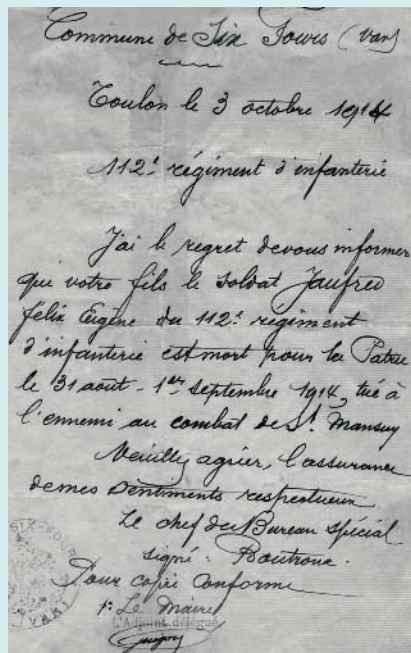 Commune de Six Fours (Var)
Toulon le 3 octobre 1914
112e régiment d'infanterie
J'ai le regret de vous informer
que votre fils le soldat Jaufred
félix Eugène du 112e régiment
d'infanterie est mort pour la Patrie
le 31 août - 1er septembre 1914, tué à
l'ennemi au combat de St. Mansuy
Veuillez agréer, l'assurance
de mes sentiments respectueux
Le chef du Bureau spécial
signé: Boutroue
Pour copie conforme
p. Le Maire
L'Adjoint délégué
SIX-FOURS
VAR